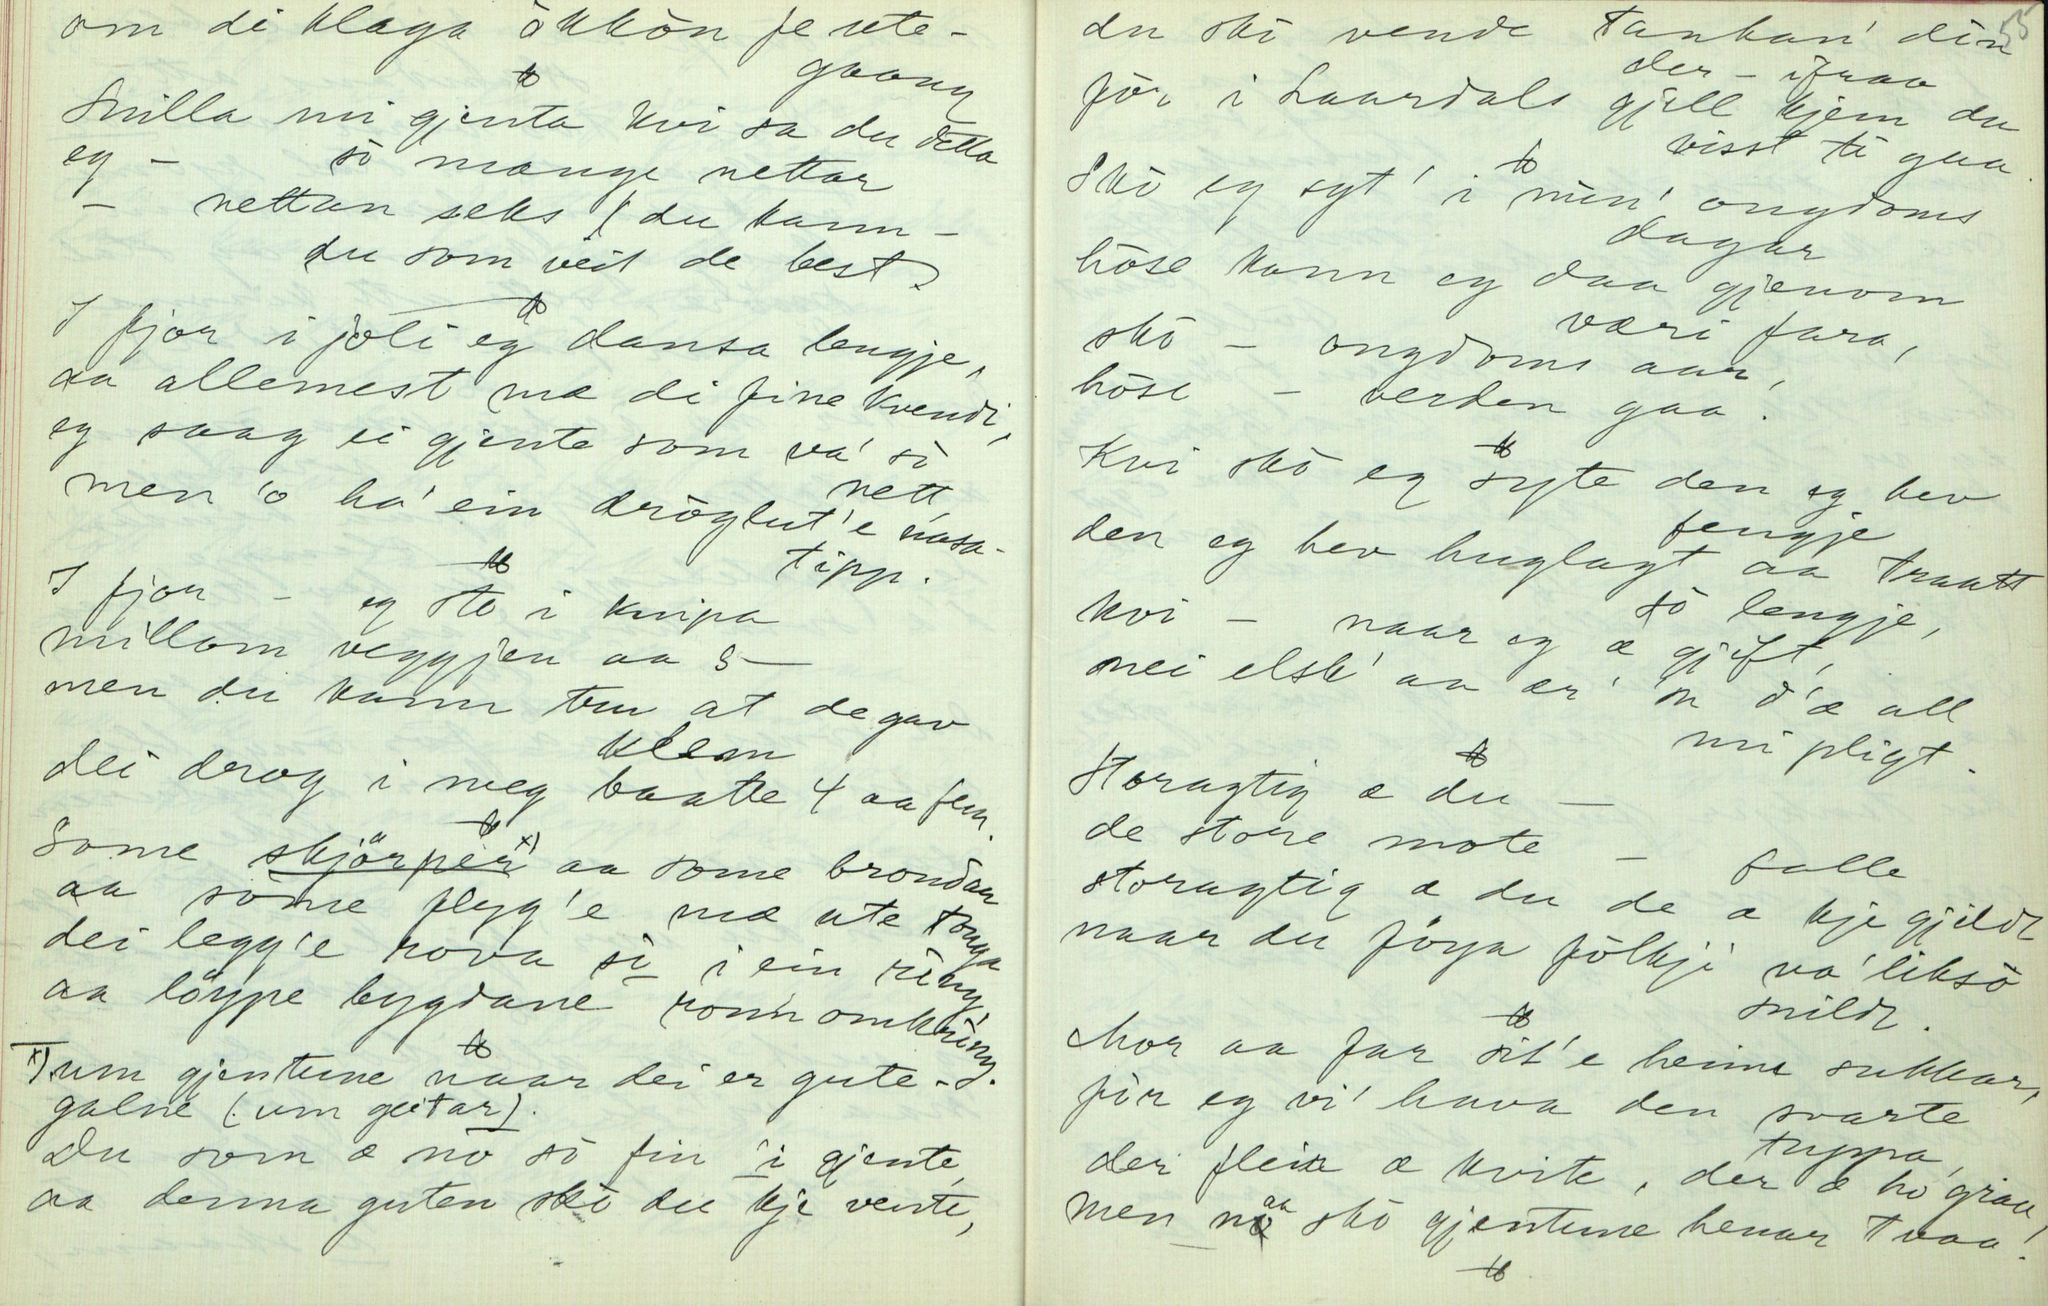 om di klaga ökkön fe ute-
gaang
Snilla mi gjenta kvi sa du detta
eg – sö mange nettar
– nettan seks / du kann –
du som veit de best.
I fjor i joli eg dansa lengje,
aa allemest mæ di fine kvendi,
eg saag ei gjente som va' sö
nett,
men 'o ha' ein dröglut'e nasa-
tipp.
I fjor – eg sto i knipa
millom veggjen aa s–
men du kann tru at de gav
klem
dei drog i meg baatte 4 aa fem.
Some skjörper x) aa some brondar
aa some flyg'e mæ ute tonga
dei legg'e rova si i ein ring,
aa löype bygdane ronn omkring.
x) um gjentune naar dei er gute-
galne (um geitar).
Du som æ no sö fin 'i gjente,
aa denna guten skö du kje vente,
55
du skö vende tankan' din
der – ifraa
för i Laardals gjell kjem du
visst ti gaa.
Skö eg syt' i min' ongdoms
dagar
höse kann eg daa gjenom
væri fara,
skö – ongdoms aar,
höse – verden gaa.
Kvi skö eg syte den eg hev
fengje
den eg hev huglagt aa traatt
sö lengje,
kvi – naar eg æ gjift,
nei elsk' aa ær' 'n d'æ all
mi pligt.
Storagtig æ du –
de store mote – falle
storagtig æ du de æ kje gjildt
naar du föya fölkji va' liksö
snildt.
Mor aa far sit'e heime sukkar,
för eg vi' hava den svarte
tuppa,
der flein æ kvite, der æ ho graa,
men naa skö gjentune henar tvaa!